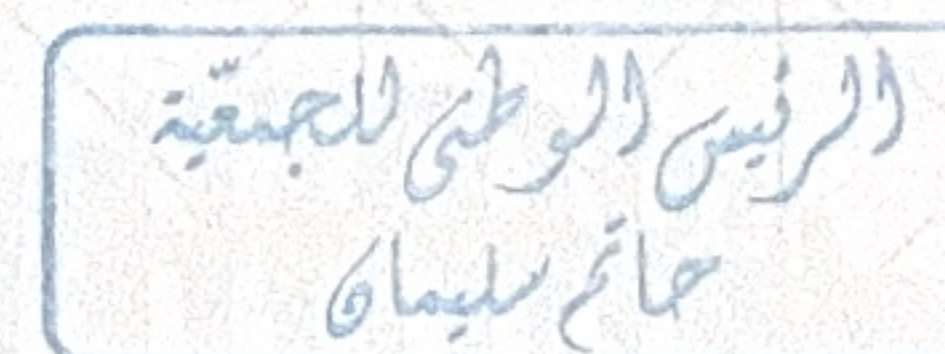 الرئيس الوطني للجمعيّة
حاتم سليمان